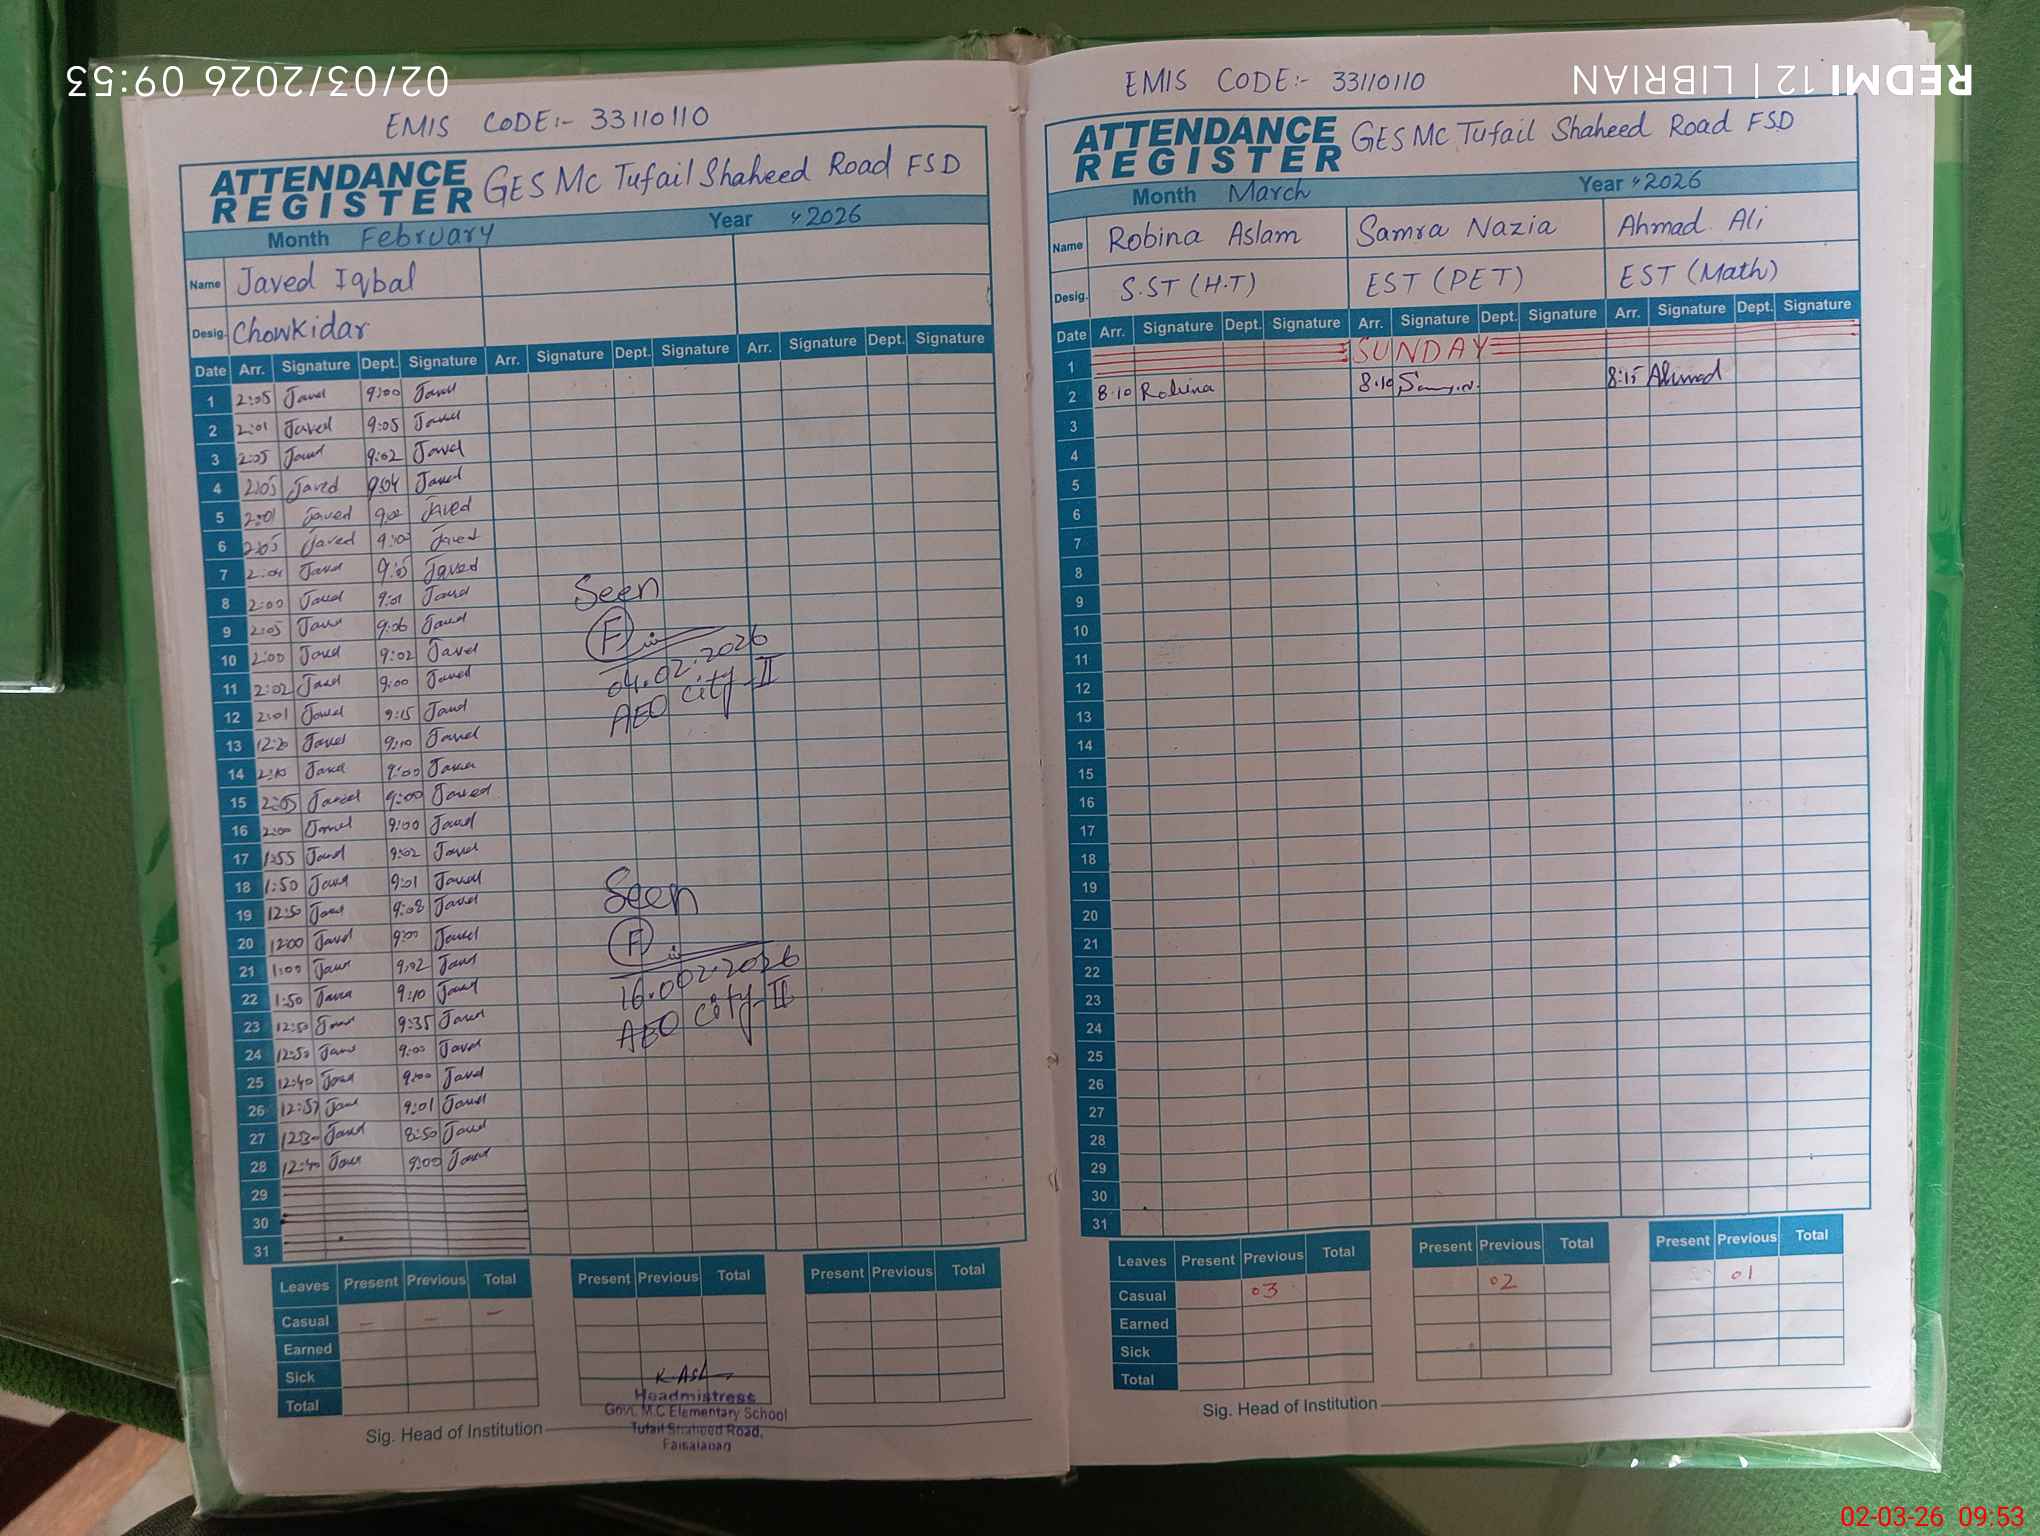 02/03/2026 09:53
REDMI 12 | LIBRIAN
EMIS CODE:- 33110110
ATTENDANCE REGISTER GES MC Tufail Shaheed Road FSD
Month February Year 2026
Name Javed Iqbal
Desig. Chowkidar
Date Arr. Signature Dept. Signature Arr. Signature Dept. Signature Arr. Signature Dept. Signature
1 2:05 Javed 9:00 Javed
2 2:01 Javed 9:05 Javed
3 2:05 Javed 9:02 Javed
4 2:05 Javed 9:04 Javed
5 2:01 Javed 9:02 Javed
6 2:05 Javed 9:00 Javed
7 2:01 Javed 9:05 Javed
8 2:00 Javed 9:01 Javed
9 2:05 Javed 9:06 Javed
10 2:00 Javed 9:02 Javed
11 2:02 Javed 9:00 Javed
12 2:01 Javed 9:15 Javed
13 12:20 Javed 9:10 Javed
14 2:10 Javed 9:00 Javed
15 2:05 Javed 9:00 Javed
16 2:00 Javed 9:00 Javed
17 1:55 Javed 9:02 Javed
18 1:50 Javed 9:01 Javed
19 12:50 Javed 9:08 Javed
20 12:00 Javed 9:00 Javed
21 1:00 Javed 9:02 Javed
22 1:50 Javed 9:10 Javed
23 12:50 Javed 9:35 Javed
24 12:50 Javed 9:00 Javed
25 12:40 Javed 9:00 Javed
26 12:57 Javed 9:01 Javed
27 12:30 Javed 8:50 Javed
28 12:40 Javed 9:00 Javed
29
30
31
Seen
F
04.02.2026
AEO City-II
Seen
F
16.002.2026
AEO City-II
Leaves Present Previous Total Present Previous Total Present Previous Total
Casual - - -
Earned
Sick
Total
Sig. Head of Institution
K Ash
Headmistress
Govt. M.C Elementary School
Tufail Shaheed Road,
Faisalabad
EMIS CODE:- 33110110
ATTENDANCE REGISTER GES MC Tufail Shaheed Road FSD
Month March Year 2026
Name Robina Aslam Samra Nazia Ahmad Ali
Desig. S.ST (H.T) EST (PET) EST (Math)
Date Arr. Signature Dept. Signature Arr. Signature Dept. Signature Arr. Signature Dept. Signature
1 SUNDAY
2 8:10 Robina 8:10 8:15 Ahmad
3
4
5
6
7
8
9
10
11
12
13
14
15
16
17
18
19
20
21
22
23
24
25
26
27
28
29
30
31
Leaves Present Previous Total Present Previous Total Present Previous Total
Casual 03 02 01
Earned
Sick
Total
Sig. Head of Institution
02-03-26 09:53